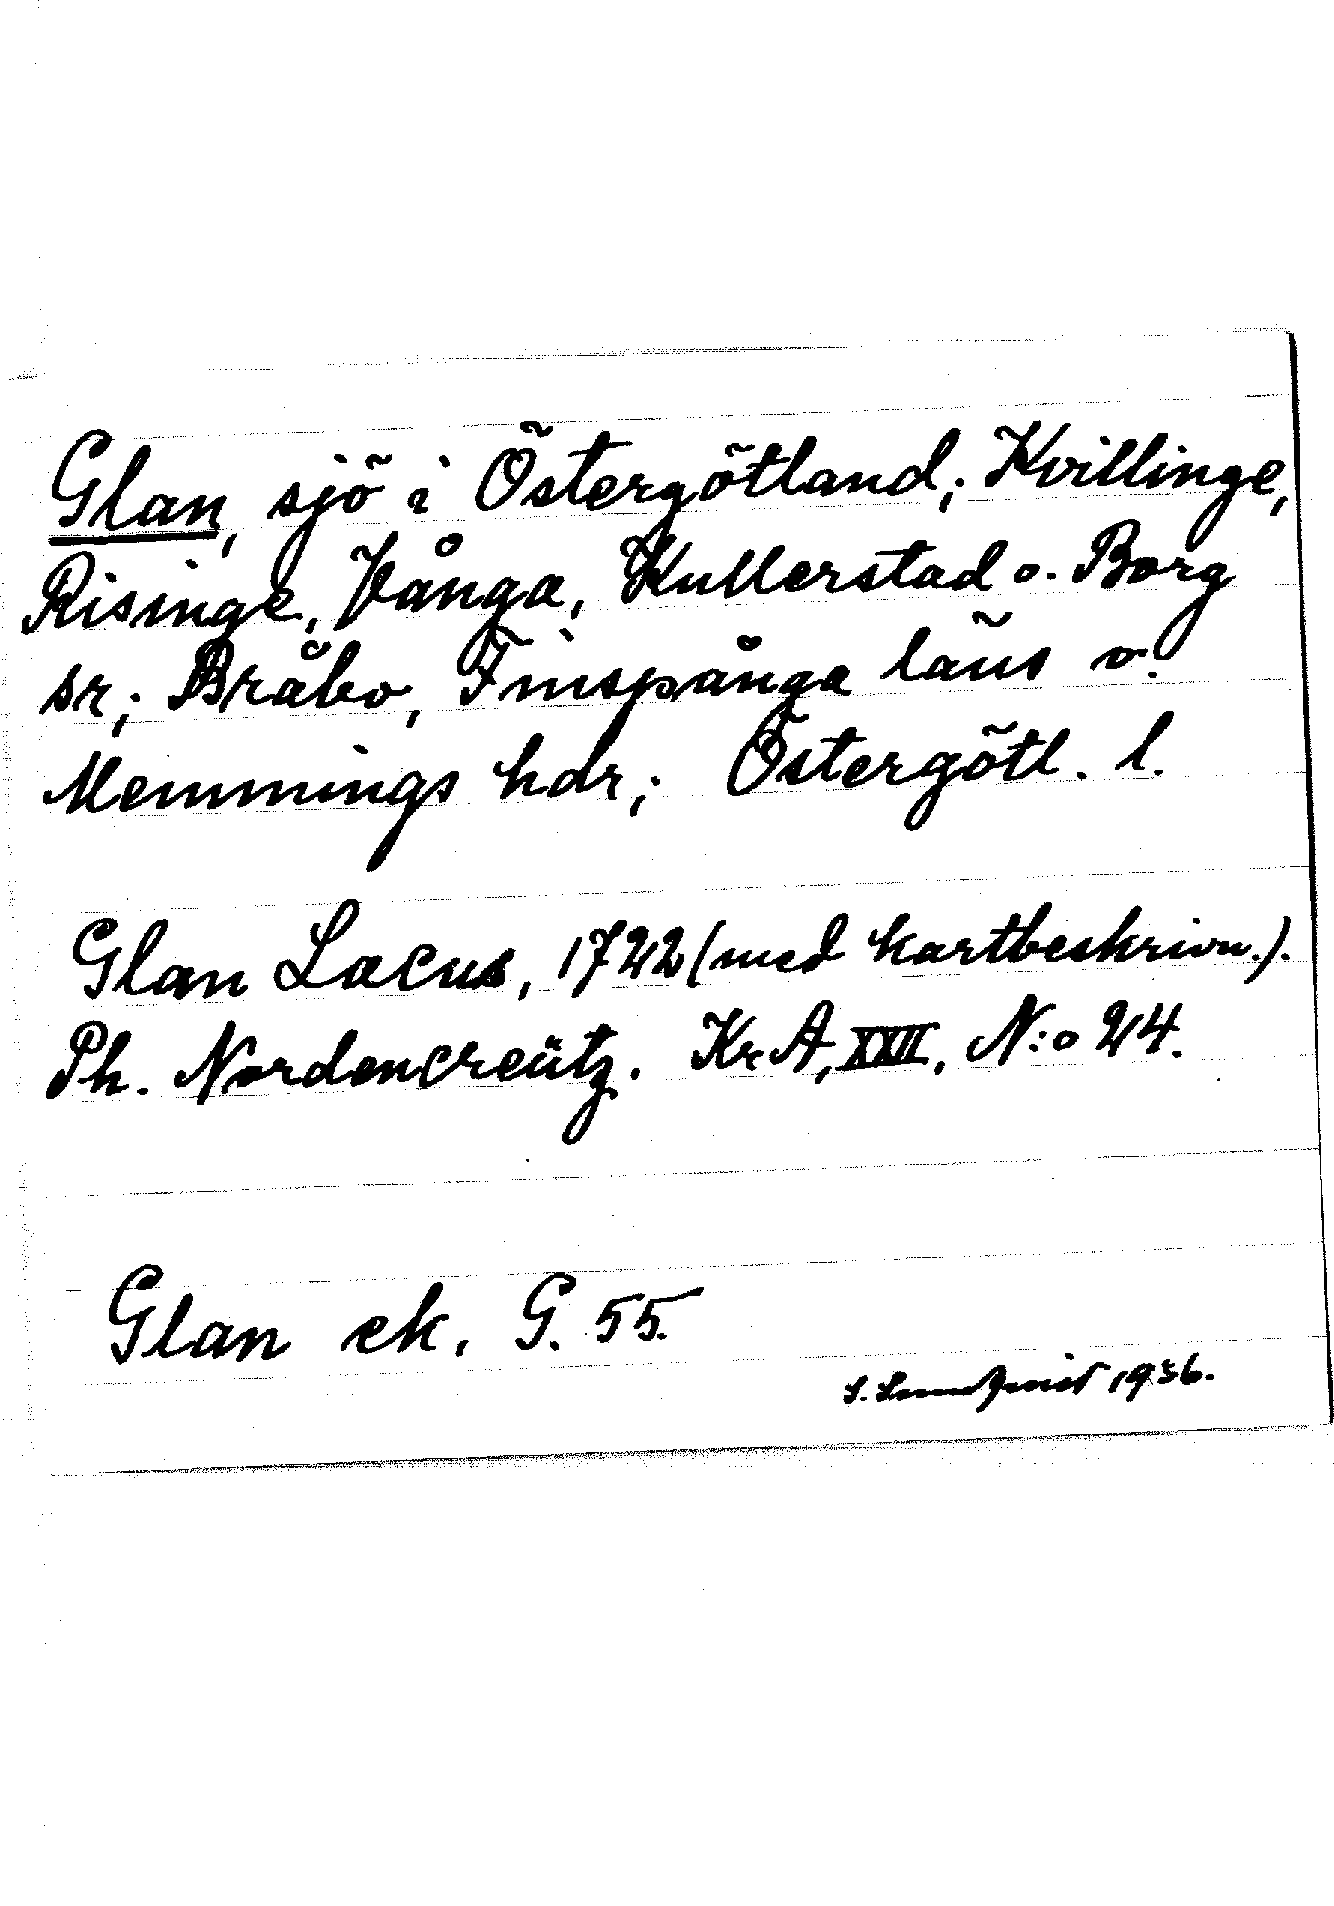 Glan, sjö i Östergötland; Kvillinge,
Risinge, Vånga, Kullerstad o. Borg
sr; Bråbo, Finspånga läns o.
Memmings hdr; Östergötl. l.
Glan Lacus, 1722 (med kartbeskrivn.).
Ph. Nordencreütz. Kr.A, XXII, N:o 24.
Glan ek. G. 55.
S. Lundqvist 1936.